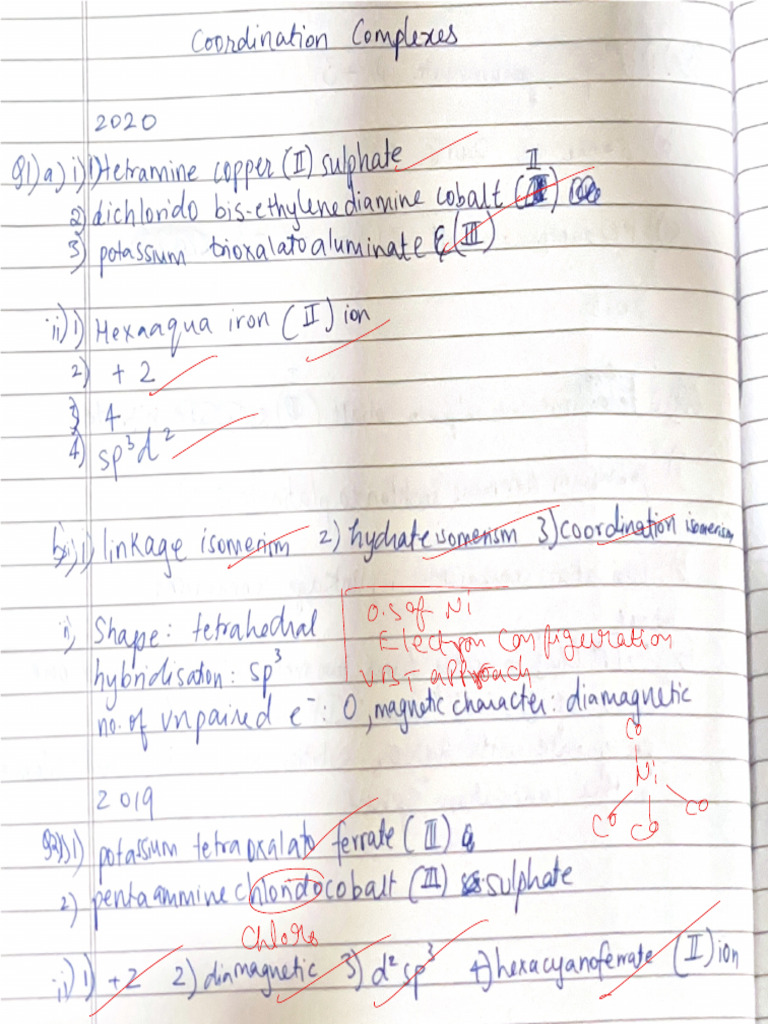 Coordination Complexes
2020
Q1) a) i) 1) tetramine copper (II) sulphate
II
2) dichlorido bis-ethylenediamine cobalt ( )
3) potassium trioxalatoaluminate (III)
ii) 1) Hexaaqua iron (II) ion
2) +2
3) 4
4) sp³d²
b) i) 1) linkage isomerism 2) hydrate isomerism 3) coordination isomerism
ii) Shape: tetrahedral
O.S of Ni
Electron configuration
hybridisaton: sp³
VBT approach
no. of unpaired e⁻: 0, magnetic character: diamagnetic
CO
Ni
CO CO CO
2019
Q3) i) 1) potassium tetraoxalato ferrate (III)
2) pentaammine chloridocobalt (III) sulphate
Chloro
ii) 1) +2 2) diamagnetic 3) d²sp³ 4) hexacyanoferrate (II) ion